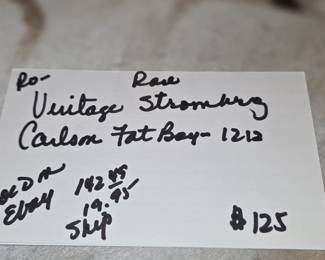 Ro- Rare
Vintage Stromberg
Carlson Fat Boy - 1212
OLD ON
Ebay
142 49
19.95
Ship
$125